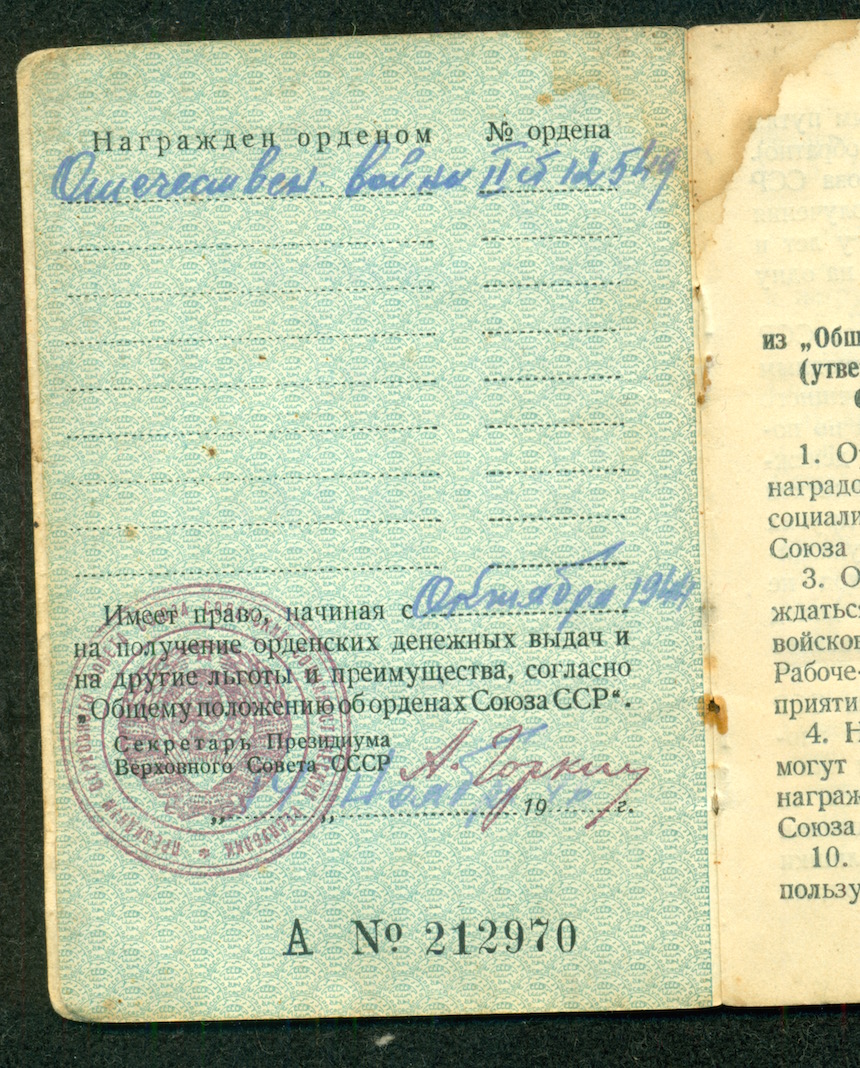 Награжден орденом № ордена
Отечествен. войны II ст 12549
Имеет право, начиная с Октября 1944
на получение орденских денежных выдач и
на другие льготы и преимущества, согласно
„Общему положению об орденах Союза ССР“.
Секретарь Президиума
Верховного Совета СССР А. Горкин
„ “ 19 г.
А № 212970
из „Общ
(утве
1. О
наградо
социали
Союза
3. О
ждатьс
войсков
Рабоче-
прияти
4. Н
могут
награж
Союза
10.
пользу